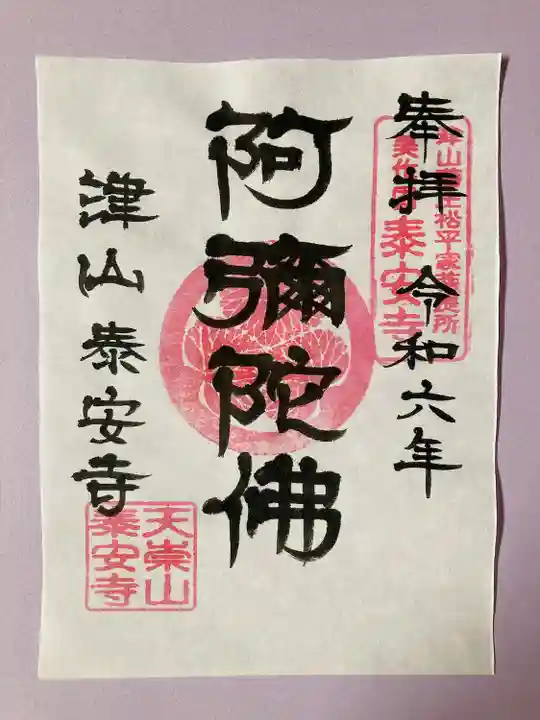 奉拝 令和六年
津山藩主松平家菩提所
美作国 泰安寺
阿彌陀佛
津山泰安寺
天崇山
泰安寺